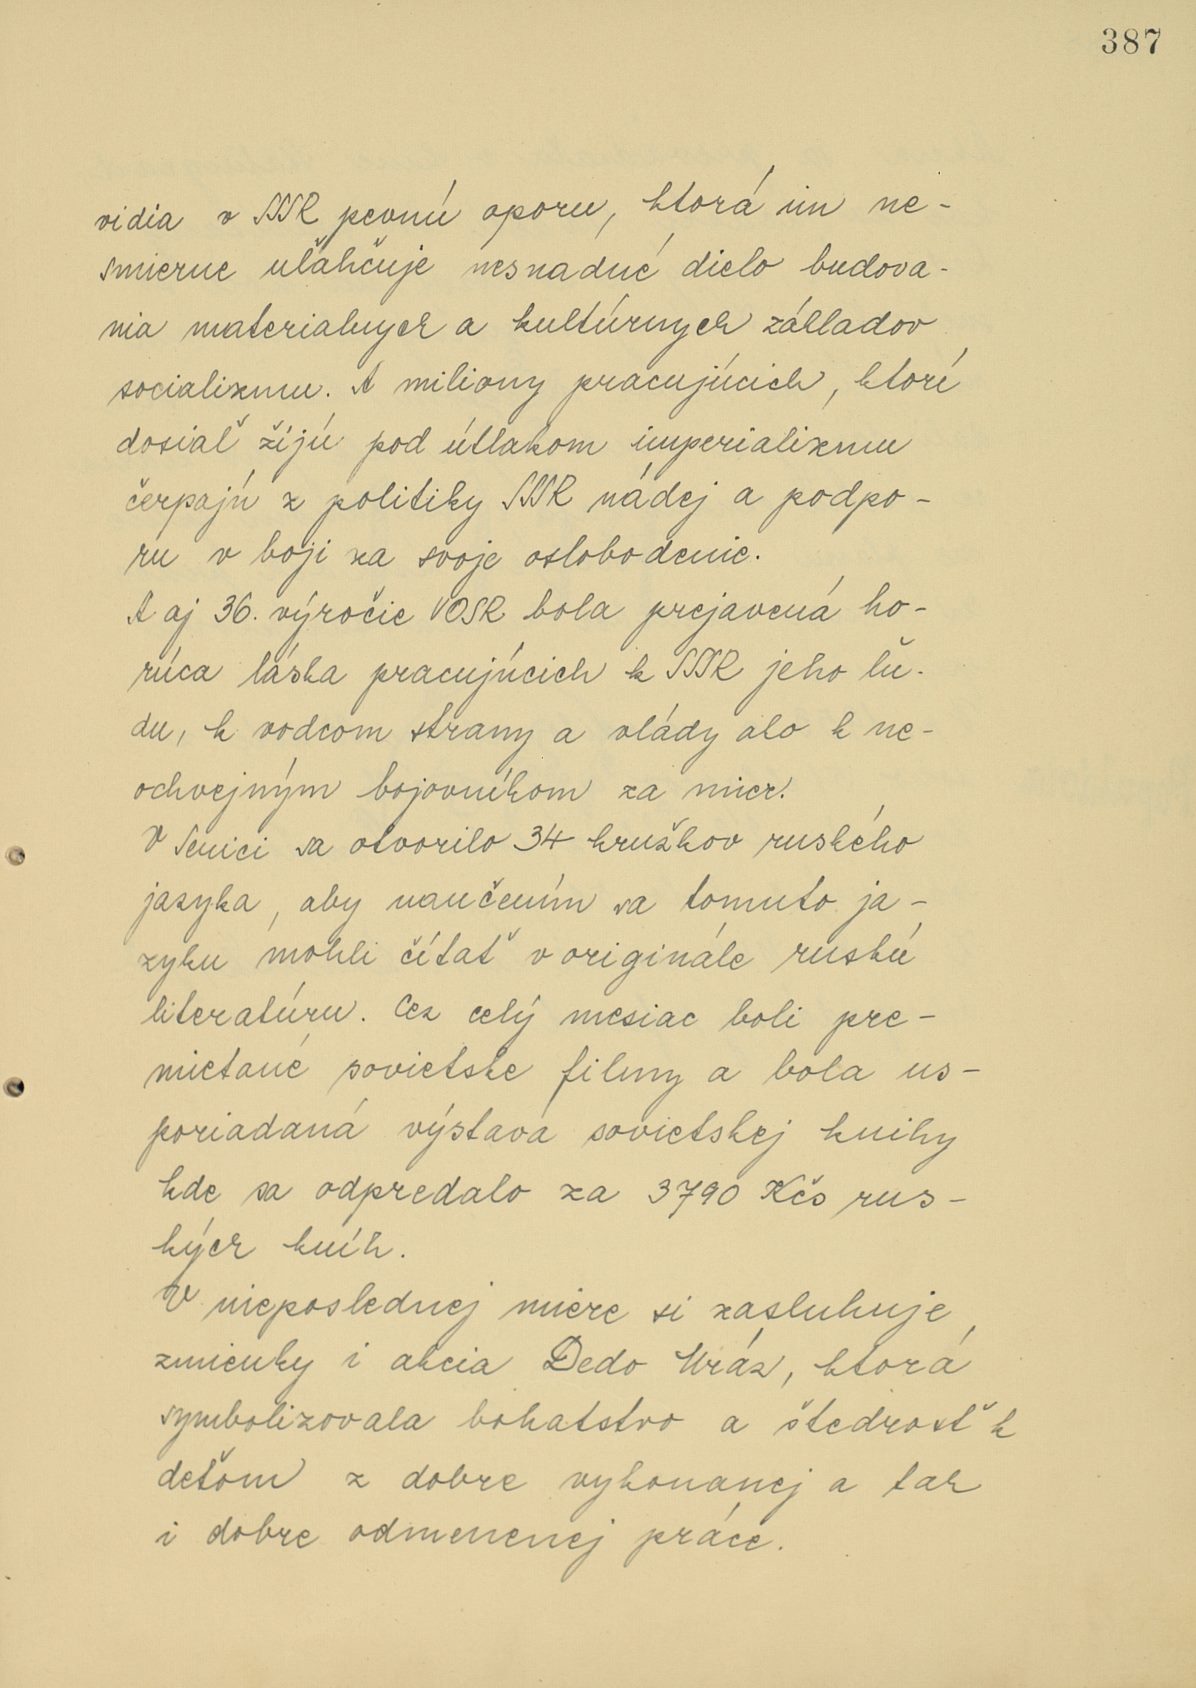 387
vidia v SSSR pevnú oporu, ktorá im ne-
smierne uľahčuje nesnadné dielo budova-
nia materialnych a kultúrnych základov
socializmu. A miliony pracujúcich, ktorí
dosiaľ žijú pod útlakom imperializmu
čerpajú z politiky SSSR nádej a podpo-
ru v boji za svoje oslobodenie.
A aj 36. výročie VOSR bola prejavená ho-
rúca láska pracujúcich k SSSR jeho ľu-
du, k vodcom strany a vlády ako k ne-
ochvejným bojovníkom za mier.
V Senici sa otvorilo 34 kružkov ruského
jazyka, aby naučením sa tomuto ja-
zyku mohli čítať v originále ruskú
literatúru. Cez celý mesiac boli pre-
mietané sovietske filmy a bola us-
poriadaná výstava sovietskej knihy
kde sa odpredalo za 3790 Kčs rus-
kých kníh.
V nieposlednej miere si zasluhuje
zmienky i akcia Dedo Mráz, ktorá
symbolizovala bohatstvo a štedrosť k
deťom z dobre vykonanej a tak
i dobre odmenenej práce.